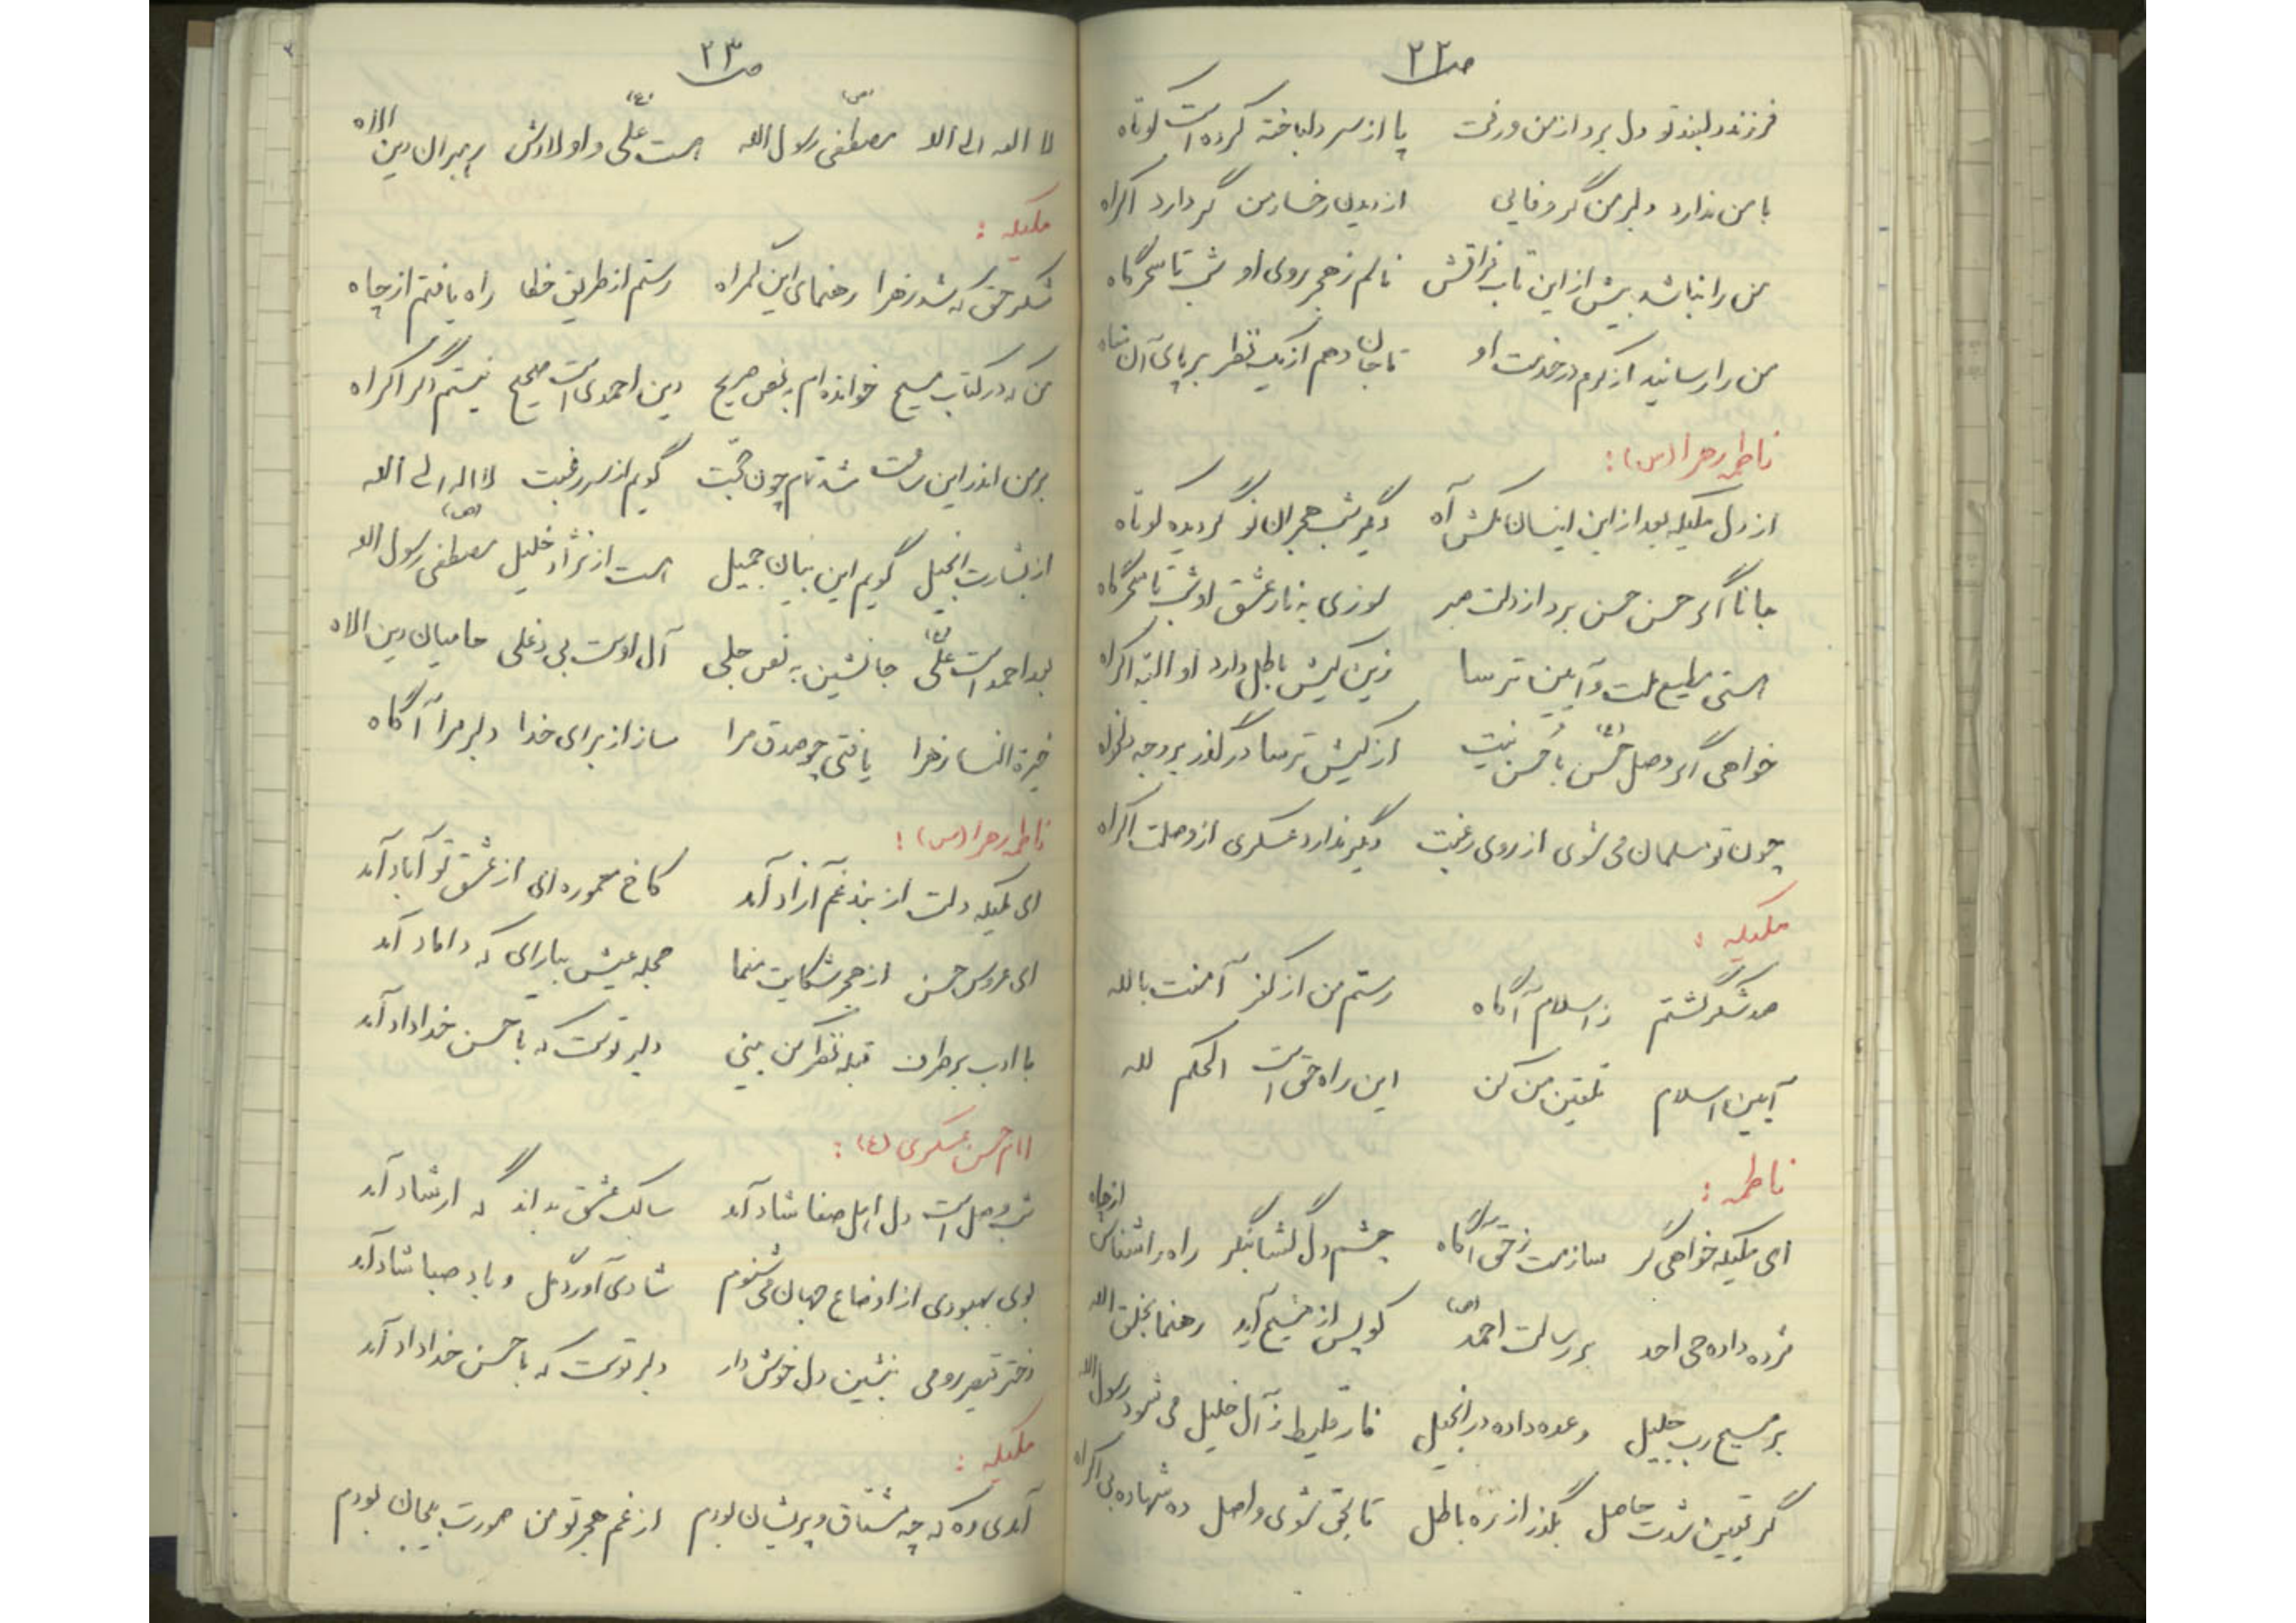 ص ۲۲
فرزند دلبند تو دل برد از من و رفت پا از سر دلباخته کرده است کوتاه
با من ندارد دلبر من گر وفایی از دیدن رخسار من گر دارد اکراه
من را نباشد بیش از این تاب فراقش نالم ز هجر روی او شب تا سحرگاه
من را رسانید از کرم در خدمت او تا جان دهم از یک نظر بر پای آن شاه
فاطمه زهرا (س) :
از دل ملیکه بعد از این اینسان مکش آه دیگر شب هجران تو گردیده کوتاه
جانا اگر حسن حسن برد از دلت صبر سوزی به نار عشق او شب تا سحرگاه
هستی مطیع ملت و آیین ترسا زین کیش باطل دارد او البته اکراه
خواهی اگر وصل حسن (ع) با حُسن نیت از کیش ترسا درگذر بر وجه دلخواه
چون تو مسلمان می شوی از روی رغبت دیگر ندارد عسکری از وصلت اکراه
ملیکه :
صد شکر گشتم ز اسلام آگاه رستم من از کفر آمنت بالله
آیین اسلام تلقین من کن این راه حق است الحکم لله
فاطمه :
ای ملیکه خواهی گر سازمت ز حق آگاه چشم دل گشا بنگر راه را شناس از چاه
مژده داده حی احد بر رسالت احمد (ص) کو پس از مسیح آید رهنما بخلق الله
بر مسیح رب جلیل وعده داده در انجیل فارقلیط ز آل خلیل می شود رسول الله
گر یقین شدت حاصل بگذر از ره باطل تا بحق شوی واصل ده شهاده بی اکراه
ص ۲۳
لا اله الی الله مصطفی (ص) رسول الله هست علی (ع) و اولادش رهبران دین الاه
ملیکه :
شکر حق که شد زهرا رهنمای این گمراه رستم از طریق خطا راه یافتم از چاه
من که در کتاب مسیح خوانده ام به نص صریح دین احمدی است صحیح نیستم دگر اکراه
بر من اندر این ساعت شد تمام چون حجّت گویم از سر رغبت لا اله الی الله
از بشارت انجیل گویم این بیان جمیل هست از نژاد خلیل مصطفی (ص) رسول الله
بعد احمد است علی (ع) جانشین به نص جلی آل اوست بی دغلی حامیان دین الاه
خیرة النسا زهرا یافتی چو صدق مرا ساز از برای خدا دلبر مرا آگاه
فاطمه زهرا (س) :
ای ملیکه دلت از بند غم آزاد آمد کاخ معموره ای از عشق تو آباد آمد
ای عروس حسن از هجر شکایت منما حجله عیش بیارای که داماد آمد
با ادب بر طرف قبله نظر کن بینی دلبر توست که با حسن خداداد آمد
امام حسن عسکری (ع) :
شب وصل است دل اهل صفا شاد آمد سالک عشق بداند که ارشاد آمد
بوی بهبودی از اوضاع جهان می شنوم شادی آورد گل و باد صبا شاد آمد
دختر قیصر رومی بنشین دل خوش دار دلبر توست که با حسن خداداد آمد
ملیکه :
آمدی وه که چه مشتاق و پریشان بودم از غم هجر تو من صورت بیجان بودم